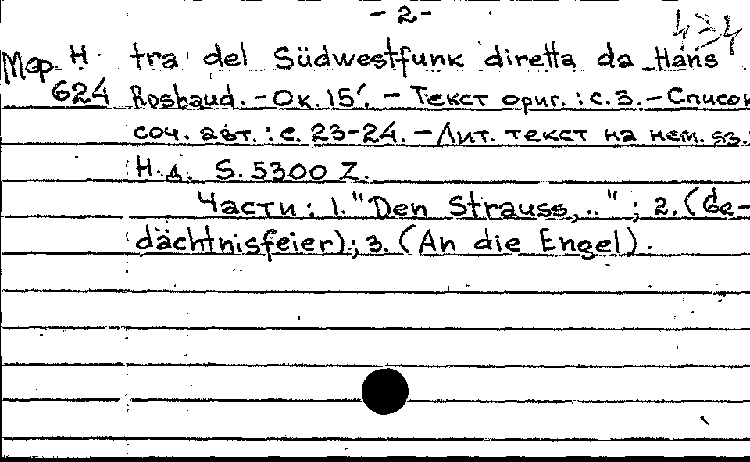 - 2 -
434
Мор. Н tra del Südwestfunk diretta da Hans
624 Rosbaud. - Ок. 15'. - Текст ориг.: с. 3. - Список
соч. авт.: с. 23-24. - Лит. текст на нем. яз.
Н.д. S. 5300 Z.
Части: 1. "Den Strauss,.."; 2. (Ge-
dächtnisfeier); 3. (An die Engel).